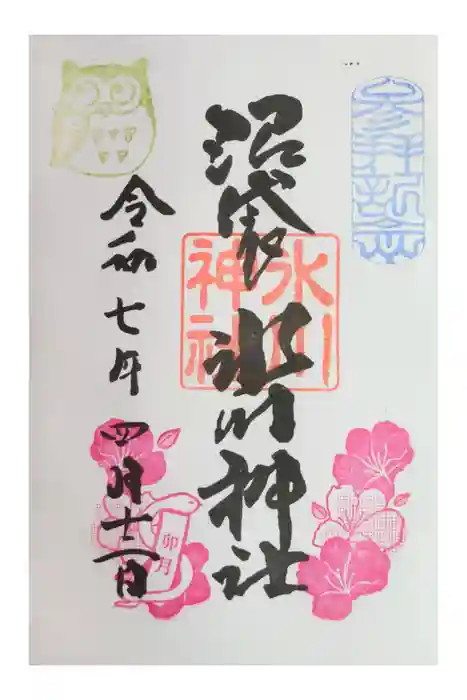 参拝記念
沼袋氷川神社
氷川
神社
令和七年四月十二日
卯月